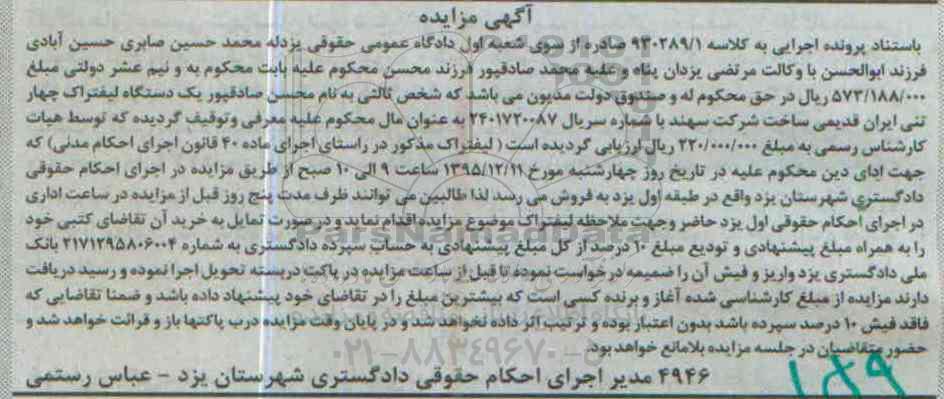 آگهی مزایده
باستناد پرونده اجرایی به کلاسه ۹۳۰۲۸۹/۱ صادره از سوی شعبه اول دادگاه عمومی حقوقی یزدله محمد حسین صابری حسین آبادی
فرزند ابوالحسن با وکالت مرتضی یزدان پناه و علیه محمد صادقپور فرزند محسن محکوم علیه بابت محکوم به و نیم عشر دولتی مبلغ
۵۷۳/۱۸۸/۰۰۰ ریال در حق محکوم له و صندوق دولت مدیون می باشد که شخص ثالثی به نام محسن صادقپور یک دستگاه لیفتراک چهار
تنی ایران قدیمی ساخت شرکت سهند با شماره سریال ۲۴۰۱۷۲۰۰۸۷ به عنوان مال محکوم علیه معرفی وتوقیف گردیده که توسط هیات
کارشناس رسمی به مبلغ ۲۲۰/۰۰۰/۰۰۰ ریال ارزیابی گردیده است ( لیفتراک مذکور در راستای اجرای ماده ۴۰ قانون اجرای احکام مدنی) که
جهت ادای دین محکوم علیه در تاریخ روز چهارشنبه مورخ ۱۳۹۵/۱۲/۱۱ ساعت ۹ الی ۱۰ صبح از طریق مزایده در اجرای احکام حقوقی
دادگستری شهرستان یزد واقع در طبقه اول یزد به فروش می رسد لذا طالبین می توانند ظرف مدت پنج روز قبل از مزایده در ساعت اداری
در اجرای احکام حقوقی اول یزد حاضر وجهت ملاحظه لیفتراک موضوع مزایده اقدام نماید و در صورت تمایل به خرید آن تقاضای کتبی خود
را به همراه مبلغ پیشنهادی و تودیع مبلغ ۱۰ درصد از کل مبلغ پیشنهادی به حساب سپرده دادگستری به شماره ۲۱۷۱۲۹۵۸۰۶۰۰۴ بانک
ملی دادگستری یزد واریز و فیش آن را ضمیمه درخواست نموده تا قبل از ساعت مزایده در پاکت دربسته تحویل اجرا نموده و رسید دریافت
دارند مزایده از مبلغ کارشناسی شده آغاز و برنده کسی است که بیشترین مبلغ را در تقاضای خود پیشنهاد داده باشد و ضمنا تقاضایی که
فاقد فیش ۱۰ درصد سپرده باشد بدون اعتبار بوده و ترتیب اثر داده نخواهد شد و در پایان وقت مزایده درب پاکتها باز و قرائت خواهد شد و
حضور متقاضیان در جلسه مزایده بلامانع خواهد بود.
۴۹۴۶ مدیر اجرای احکام حقوقی دادگستری شهرستان یزد - عباس رستمی
ParsNamadData
۰۲۱-۸۸۳۴۹۶۷۰